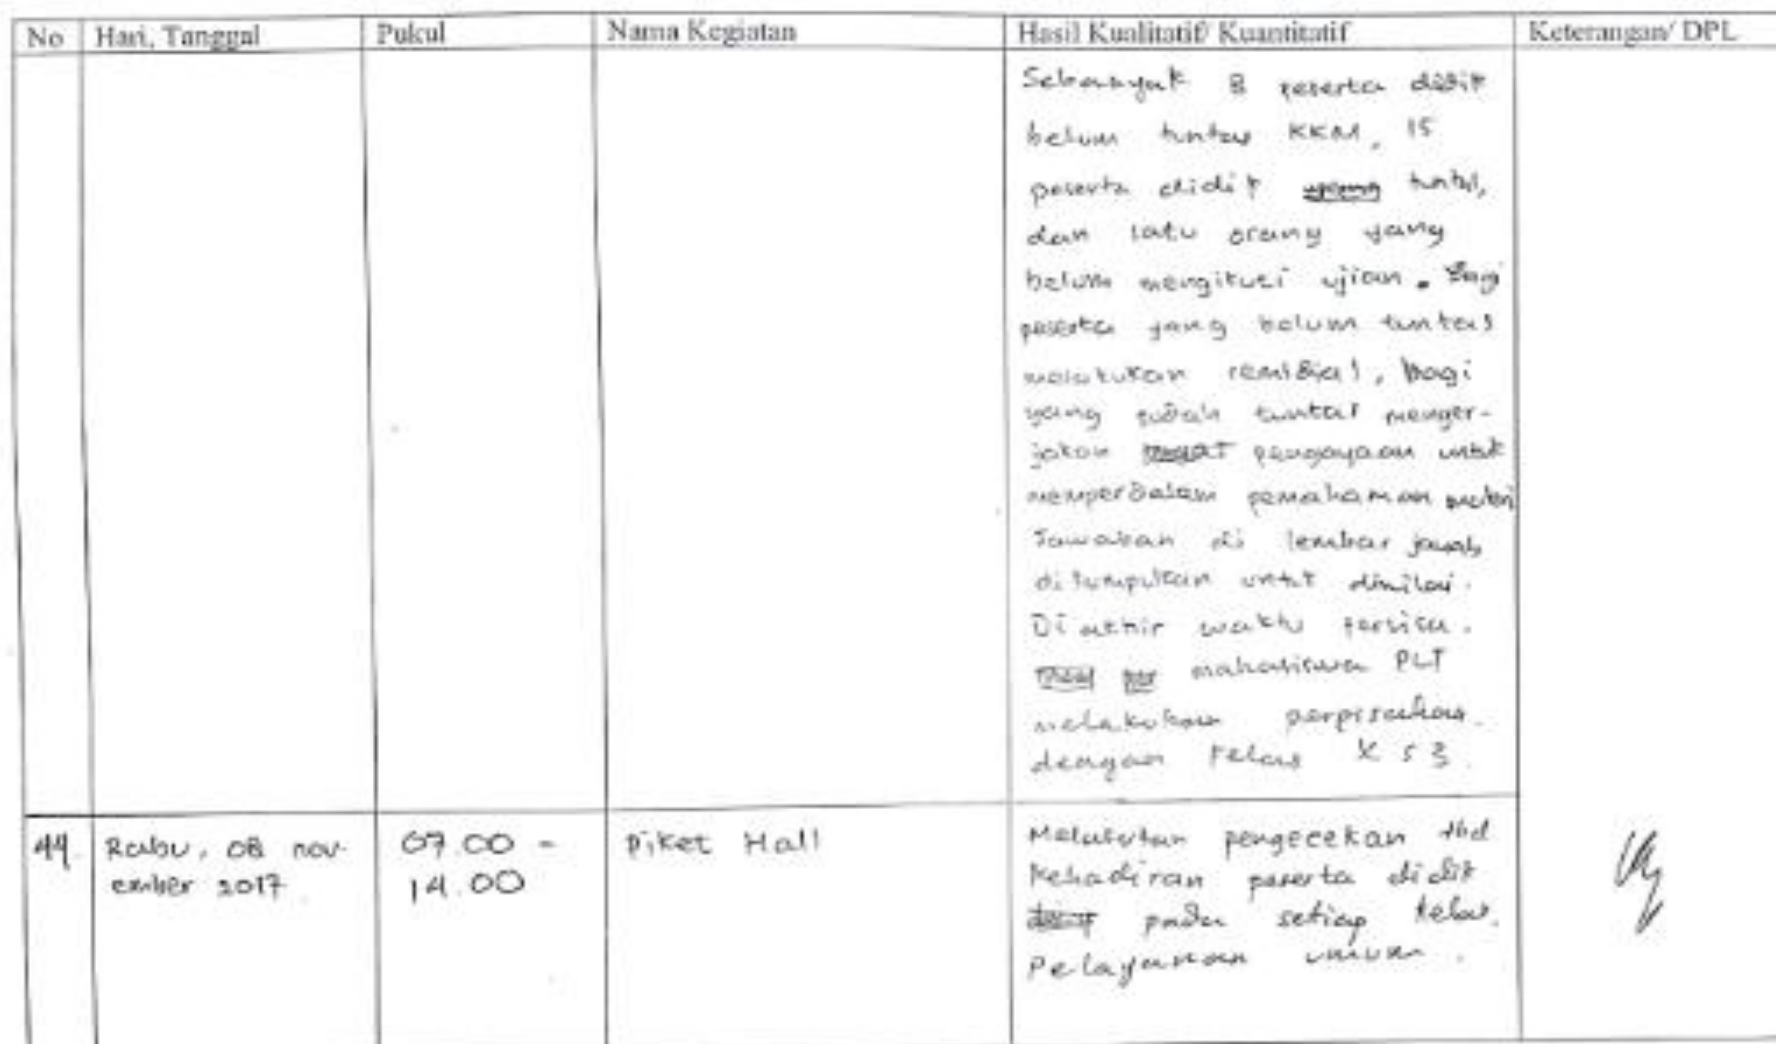 No Hari, Tanggal Pukul Nama Kegiatan Hasil Kualitatif/ Kuantitatif Keterangan/ DPL
Sebanyak 8 peserta didik
belum tuntas KKM, 15
peserta didik tuntas,
dan satu orang yang
belum mengikuti ujian. Bagi
peserta yang belum tuntas
melakukan remidial, bagi
yang sudah tuntas menger-
jakan pengayaan untuk
memperdalam pemahaman materi
Jawaban di lembar jawab
ditumpulkan untuk dinilai.
Di akhir waktu tersisa.
mahasiswa PLT
melakukan perpisahan
dengan kelas X S 3.
44. Rabu, 08 nov- 07.00 - Piket Hall Melakukan pengecekan thd
ember 2017 14.00 kehadiran peserta didik
pada setiap kelas.
Pelayanan umum.